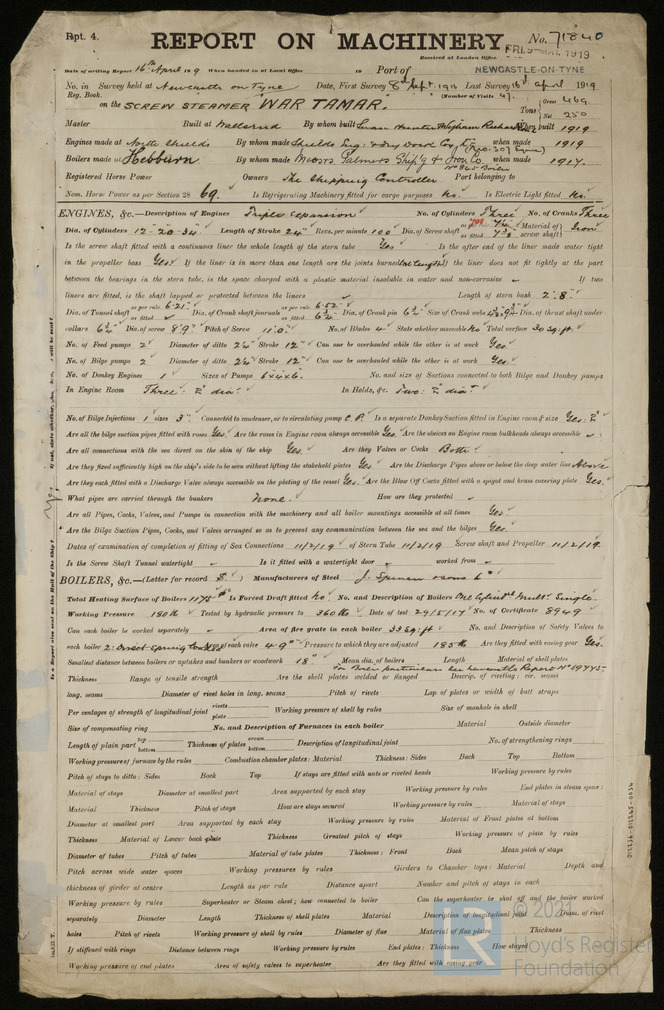 Rpt. 4.
REPORT ON MACHINERY
No. 71840
Received at London Office FRI. 9 MAY 1919
Date of writing Report 16th April 1919 When handed in at Local Office 19 Port of NEWCASTLE-ON-TYNE
No. in Survey held at Newcastle on Tyne Date, First Survey 8th Sept. 191 Last Survey 16th April 1919
Reg. Book. (Number of Visits 41)
on the SCREW STEAMER WAR TAMAR. Tons Gross 469 Net 250
Master Built at Wallsend By whom built Swan Hunter & Wigham Richardson When built 1919
Engines made at North Shields By whom made Shields Eng. & Dry Dock Coy. Ltd when made 1919
Boilers made at Hebburn By whom made Messrs Palmers Shipbg & Iron Co. when made 1917.
Registered Horse Power Owners The Shipping Controller Port belonging to
Nom. Horse Power as per Section 28 69. Is Refrigerating Machinery fitted for cargo purposes No. Is Electric Light fitted No.
ENGINES, &c.—Description of Engines Triple expansion No. of Cylinders Three No. of Cranks Three
Dia. of Cylinders 12-20-34" Length of Stroke 24" Revs. per minute 100 Dia. of Screw shaft as per rule as fitted Material of screw shaft Iron
Is the screw shaft fitted with a continuous liner the whole length of the stern tube Yes Is the after end of the liner made water tight
in the propeller boss Yes If the liner is in more than one length are the joints burned If the liner does not fit tightly at the part
between the bearings in the stern tube, is the space charged with a plastic material insoluble in water and non-corrosive - If two
liners are fitted, is the shaft lapped or protected between the liners Length of stern bush 2'.8"
Dia. of Tunnel shaft as per rule 6.21" as fitted Dia. of Crank shaft journals as per rule 6.52" as fitted 6¾" Dia. of Crank pin 6¾" Size of Crank webs Dia. of thrust shaft under
collars 6¾" Dia. of screw 8'.9" Pitch of Screw 11'.0" No. of Blades 4 State whether moveable No Total surface 30 sq. ft.
No. of Feed pumps 2 Diameter of ditto 2¼" Stroke 12" Can one be overhauled while the other is at work Yes
No. of Bilge pumps 2 Diameter of ditto 2¼" Stroke 12" Can one be overhauled while the other is at work Yes.
No. of Donkey Engines 1 Sizes of Pumps 6x4x6. No. and size of Suctions connected to both Bilge and Donkey pumps
In Engine Room Three: 2" dia. In Holds, &c. Two: 2" dia.
No. of Bilge Injections 1 sizes 3" Connected to condenser, or to circulating pump C.P. Is a separate Donkey Suction fitted in Engine room & size Yes: 2"
Are all the bilge suction pipes fitted with roses Yes Are the roses in Engine room always accessible Yes Are the sluices on Engine room bulkheads always accessible -
Are all connections with the sea direct on the skin of the ship Yes. Are they Valves or Cocks Both
Are they fixed sufficiently high on the ship's side to be seen without lifting the stokehold plates Yes. Are the Discharge Pipes above or below the deep water line Above
Are they each fitted with a Discharge Valve always accessible on the plating of the vessel Yes. Are the Blow Off Cocks fitted with a spigot and brass covering plate Yes.
What pipes are carried through the bunkers None. How are they protected -
Are all Pipes, Cocks, Valves, and Pumps in connection with the machinery and all boiler mountings accessible at all times Yes
Are the Bilge Suction Pipes, Cocks, and Valves arranged so as to prevent any communication between the sea and the bilges Yes.
Dates of examination of completion of fitting of Sea Connections 11/2/19 of Stern Tube 11/2/19 Screw shaft and Propeller 11/2/19.
Is the Screw Shaft Tunnel watertight - Is it fitted with a watertight door - worked from -
BOILERS, &c.—(Letter for record S.) Manufacturers of Steel J. Spencer & Sons Ld
Total Heating Surface of Boilers 1175 Is Forced Draft fitted No No. and Description of Boilers One Cylindl. Mult. Single
Working Pressure 180 lb Tested by hydraulic pressure to 360 lbs Date of test 29/5/17 No. of Certificate 8949
Can each boiler be worked separately - Area of fire grate in each boiler 33 sq. ft No. and Description of Safety Valves to
each boiler 2: Direct Spring loaded Area of each valve 4.9" Pressure to which they are adjusted 185 lb Are they fitted with easing gear Yes.
Smallest distance between boilers or uptakes and bunkers or woodwork 18" Mean dia. of boilers Length Material of shell plates
For Boiler particulars see Newcastle Report No 69445.
Thickness Range of tensile strength Are the shell plates welded or flanged Descrip. of riveting: cir. seams
long. seams Diameter of rivet holes in long. seams Pitch of rivets Lap of plates or width of butt straps
Per centages of strength of longitudinal joint rivets plate Working pressure of shell by rules Size of manhole in shell
Size of compensating ring No. and Description of Furnaces in each boiler Material Outside diameter
Length of plain part top bottom Thickness of plates crown bottom Description of longitudinal joint No. of strengthening rings
Working pressure of furnace by the rules Combustion chamber plates: Material Thickness: Sides Back Top Bottom
Pitch of stays to ditto: Sides Back Top If stays are fitted with nuts or riveted heads Working pressure by rules
Material of stays Diameter at smallest part Area supported by each stay Working pressure by rules End plates in steam space:
Material Thickness Pitch of stays How are stays secured Working pressure by rules Material of stays
Diameter at smallest part Area supported by each stay Working pressure by rules Material of Front plates at bottom
Thickness Material of Lower back plate Thickness Greatest pitch of stays Working pressure of plate by rules
Diameter of tubes Pitch of tubes Material of tube plates Thickness: Front Back Mean pitch of stays
Pitch across wide water spaces Working pressures by rules Girders to Chamber tops: Material Depth and
thickness of girder at centre Length as per rule Distance apart Number and pitch of stays in each
Working pressure by rules Superheater or Steam chest; how connected to boiler Can the superheater be shut off and the boiler worked
separately Diameter Length Thickness of shell plates Material Description of longitudinal joint Diam. of rivet
holes Pitch of rivets Working pressure of shell by rules Diameter of flue Material of flue plates Thickness
If stiffened with rings Distance between rings Working pressure by rules End plates: Thickness How stayed
Working pressure of end plates Area of safety valves to superheater Are they fitted with easing gear
© 2021
Lloyd's Register
Foundation